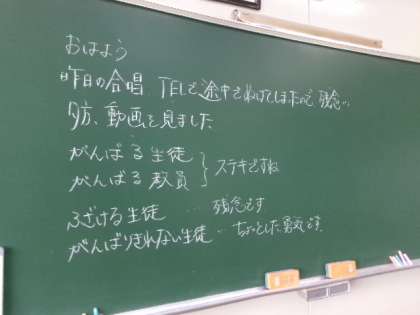 おはよう
昨日の合唱、TELで途中でぬけてしまたので、残念…
夕方、動画を見ました
がんばる生徒
がんばる教員 } ステキですね
ふざける生徒 … 残念です
がんばりきれない生徒 … ちょっとした勇気です